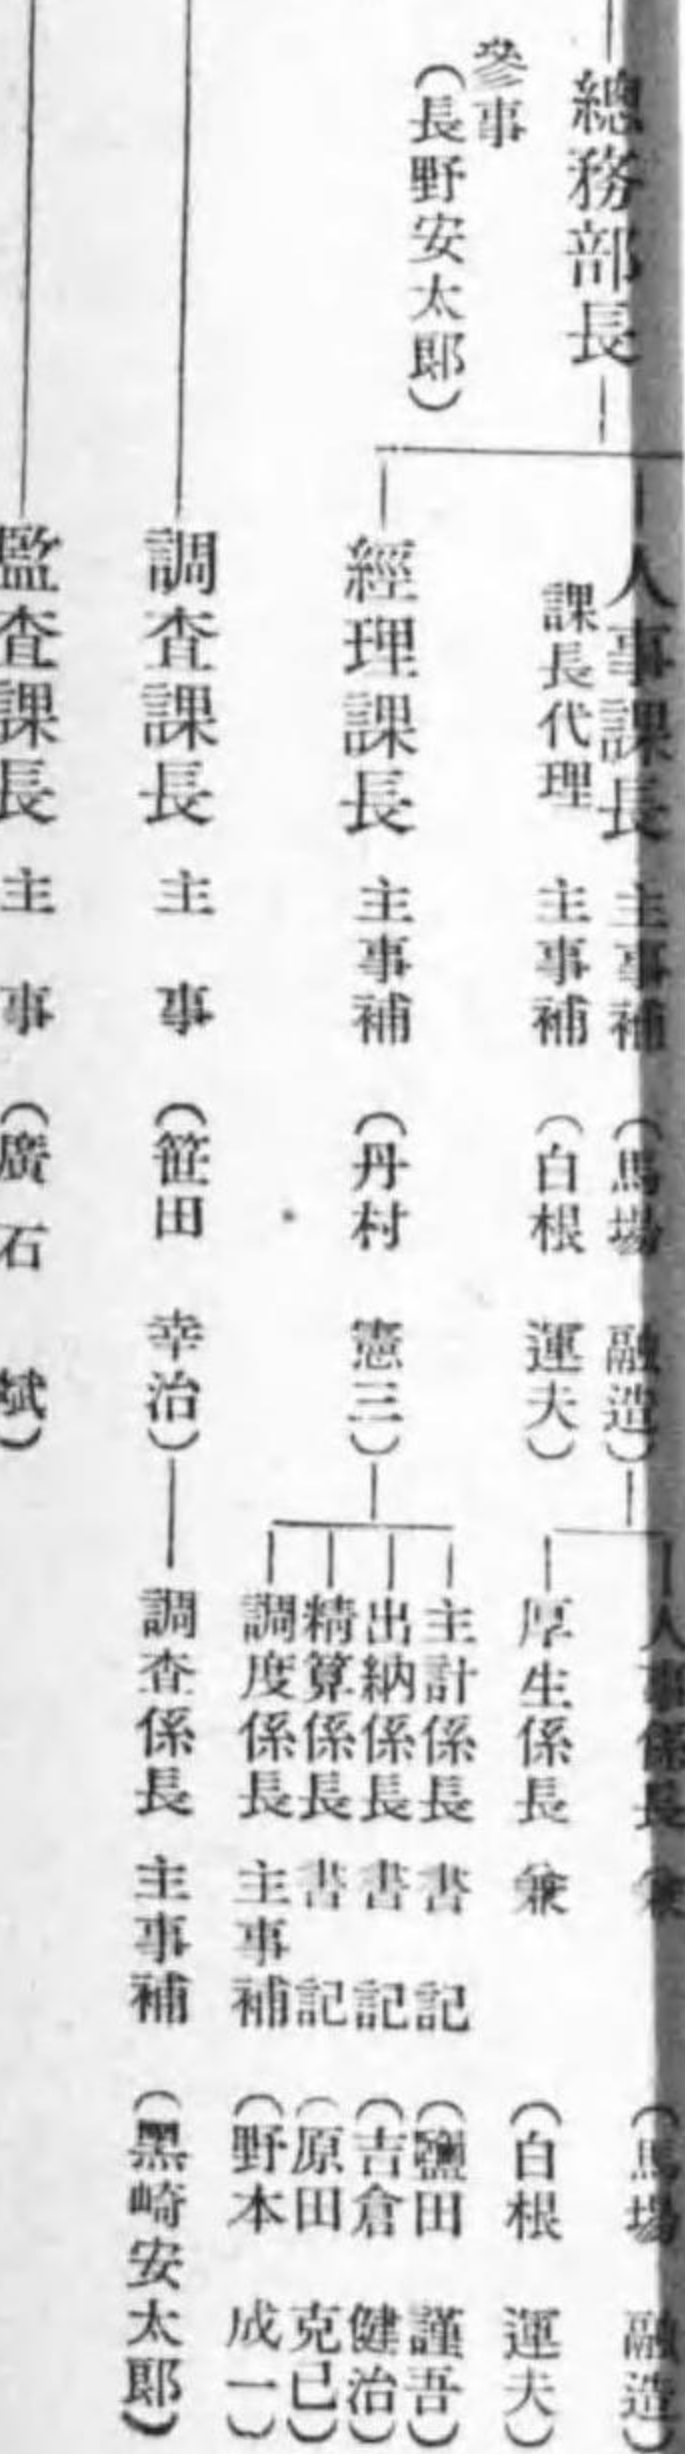 總務部長
參事
（長野安太郎）
人事課長 主事補 （馬場 融造）
人事係長 兼 （馬場 融造）
課長代理 主事補 （白根 運夫）
厚生係長 兼 （白根 運夫）
經理課長 主事補 （丹村 憲三）
主計係長 書記 （鹽田 謹吾）
出納係長 書記 （吉倉 健治）
精算係長 書記 （原田 克已）
調度係長 主事補 （野本 成一）
調查課長 主事 （笹田 幸治）
調查係長 主事補 （黑崎安太郎）
監査課長 主事 （廣石 斌）